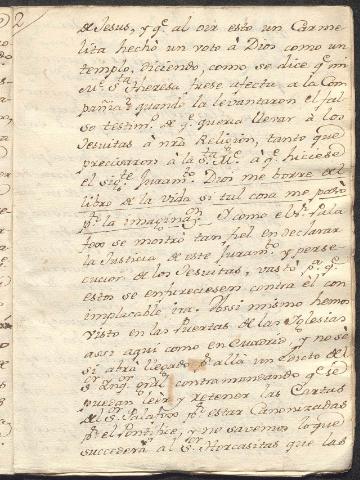 2
de Jesus, y q.e al oir esto un Carme
lita hechó un voto à Dios como un
templo, diciendo, como se dice q.e mi
M.e S.ta Theresa fuese afecta, a la Com
pañia, quando la levantaron el fal
so testim.o de q.e queria llevar à los
Jesuitas à nra Religion, tanto que
precisaron à la S.ta M.e à q.e hiciese
el sig.te Juram.to Dios me borre del
libro de la vida si tal cosa me pasò
p.r la imaginaz.n Y como el V. Pala
fox se mostrò tan fiel en declarar
la Justicia de este Juram.to y perse
cucion de los Jesuitas, vastò p.a q.e
estos se enfureciesen contra èl con
implacable ira. Assi mismo hemos
visto en las Puertas de las Iglesias
assi aqui como en y no sè
si abrà llegado p.r allà un Edicto del
S.or Inq.or gral contramandando q.e se
puedan leèr y retener las Cartas
del S.or Palafox p.r estar Canonizadas
p.r el Pontifice, y no savemos lo que
succederà al S.or Horcasitas que las